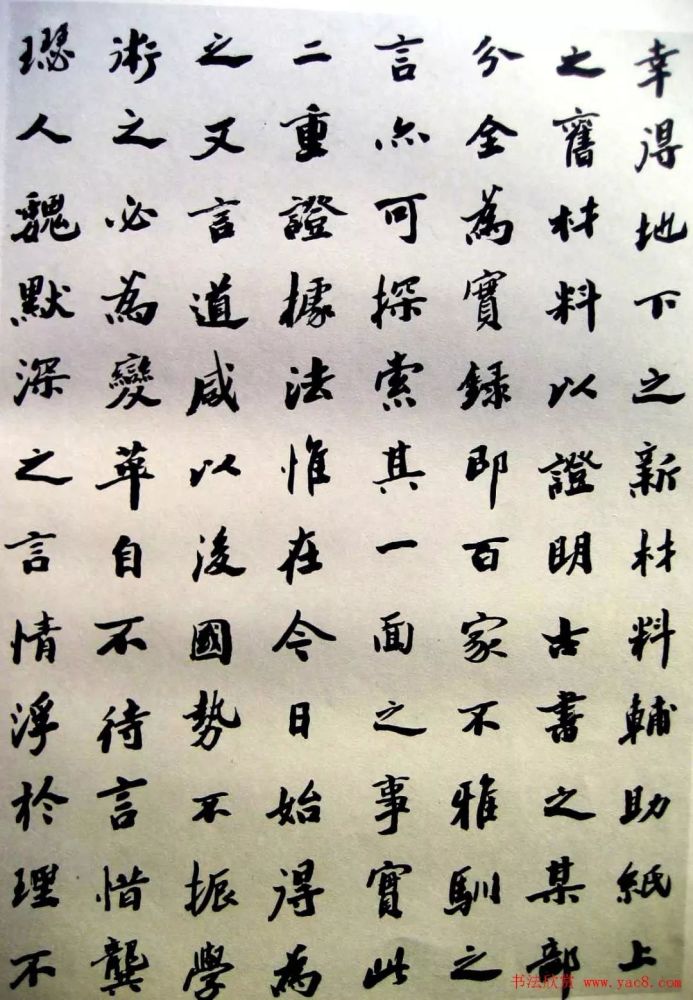 幸得地下之新材料輔助紙上
之舊材料以證明古書之某部
分全為實錄即百家不雅馴之
言亦可探索其一面之事實此
二重證據法惟在今日始得為
之又言道咸以後國勢不振學
術之必為變革自不待言惜龔
璱人魏默深之言情浮於理不
书法欣赏 www.yac8.com